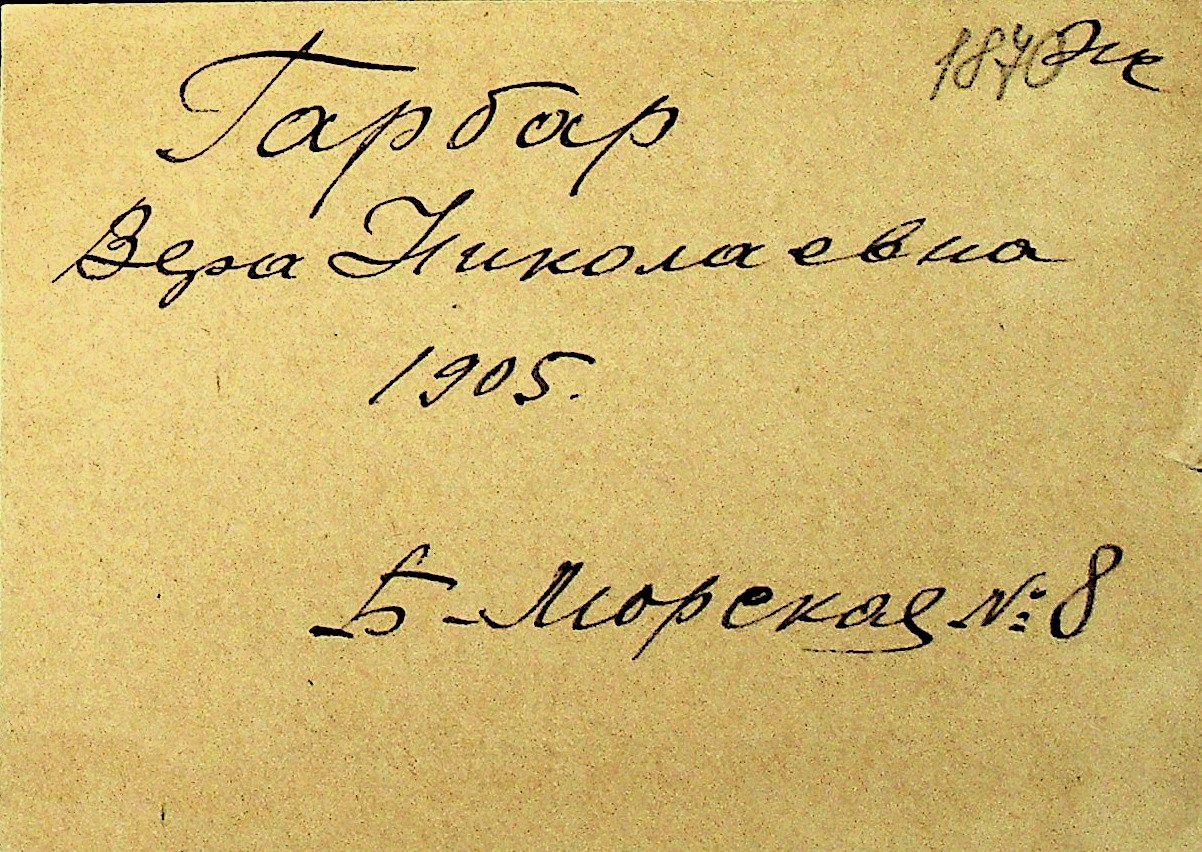 Гарбар
Вера Николаевна
1905.
Б-Морская №8